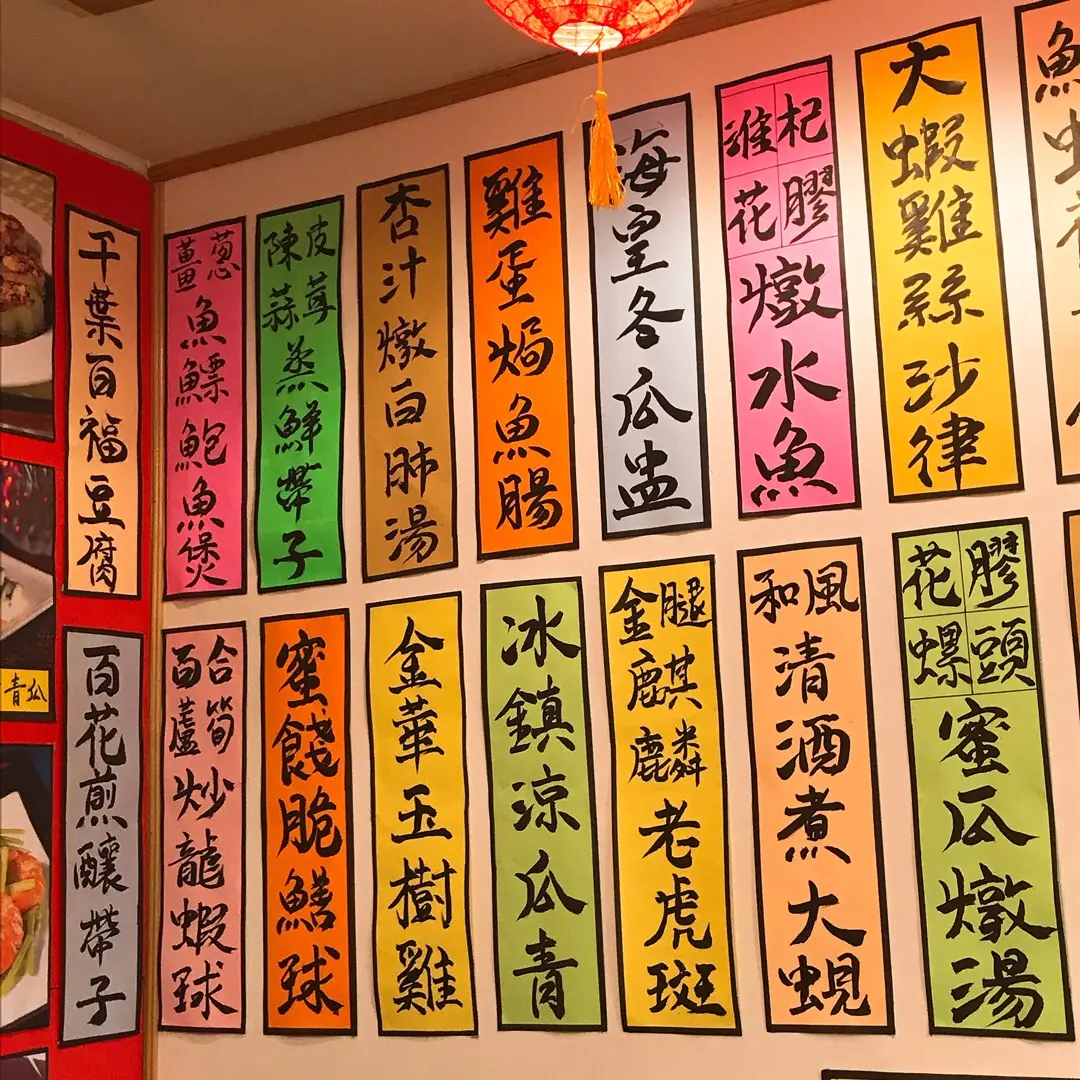 千葉百福豆腐
薑葱魚鰾鮑魚煲
陳皮蒜茸蒸鮮帶子
杏汁燉白肺湯
雞蛋焗魚腸
海皇冬瓜盅
淮杞花膠燉水魚
大蝦雞絲沙律
魚
青瓜
百花煎釀帶子
百合蘆筍炒龍蝦球
蜜餞脆鱔球
金華玉樹雞
冰鎮涼瓜青
金腿麒麟老虎斑
和風清酒煮大蜆
花膠螺頭蜜瓜燉湯